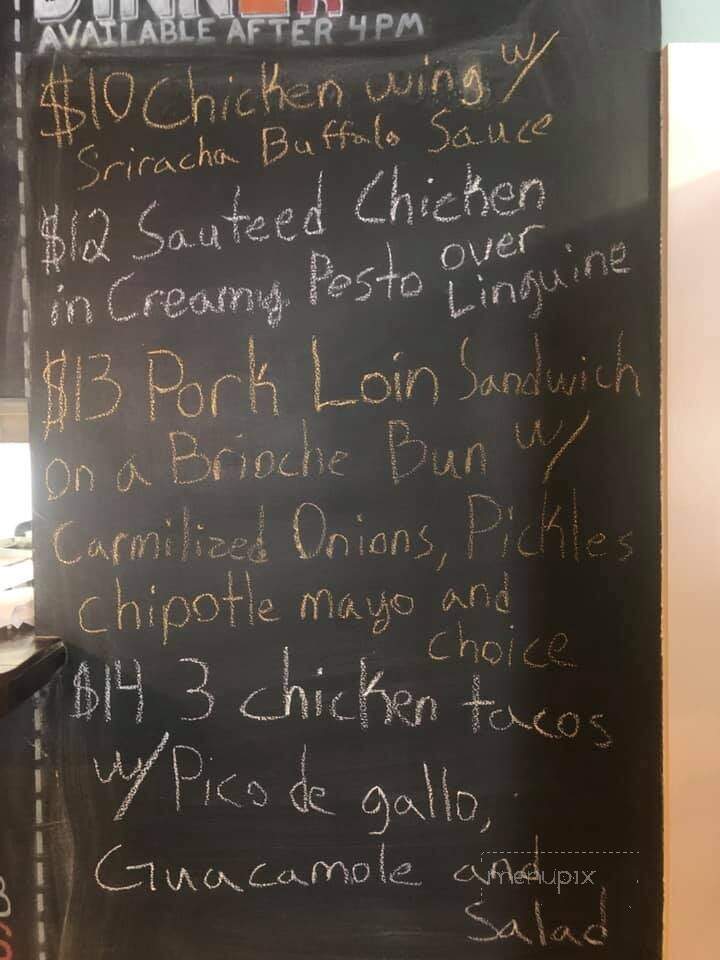 DINNER
AVAILABLE AFTER 4PM
$10 Chicken wing w/
Sriracha Buffalo Sauce
$12 Sauteed Chicken
in Creamy Pesto over
Linguine
$13 Pork Loin Sandwich
on a Brioche Bun w/
Carmilized Onions, Pickles
chipotle mayo and
choice
$14 3 chicken tacos
w/ Pico de gallo,
Guacamole and
Salad
menupix